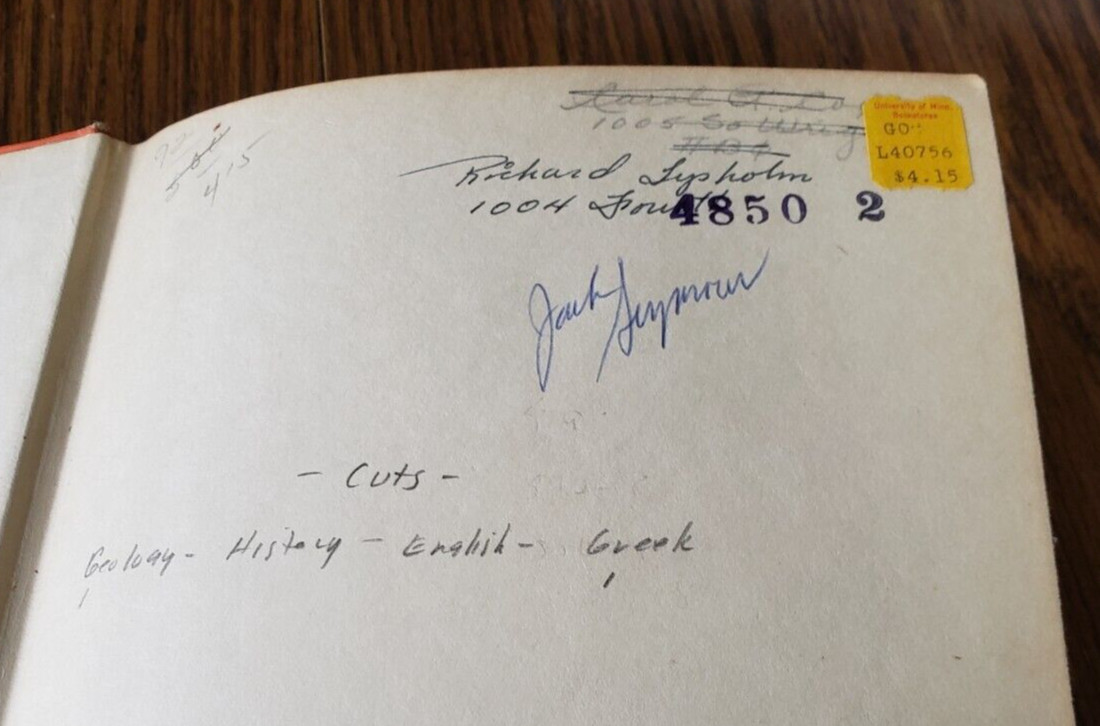 University of Minn.
Bookstores
GO
L40756
$4.15
4 15
1005 So
Richard Lysholm
1004 Fourth
4850 2
Jack Seymour
- Cuts -
Geology - History - English - Greek